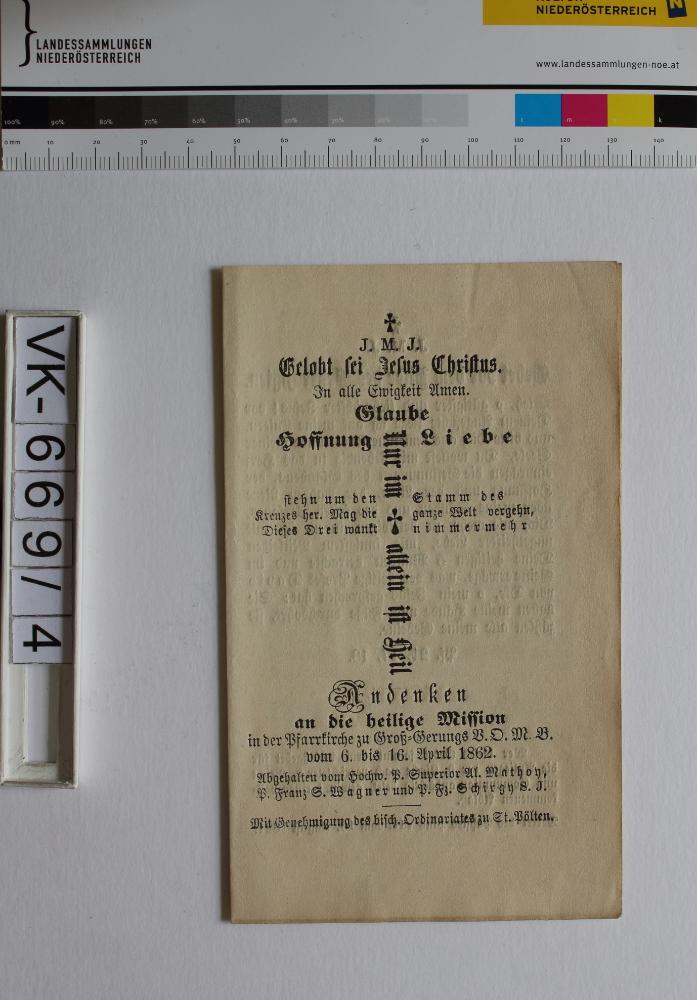 LANDESSAMMLUNGEN
NIEDERÖSTERREICH
NIEDERÖSTERREICH
www.landessammlungen-noe.at
100% 90% 80% 70% 60% 50% 40% 30% 20% 10% c m y k
0 mm 10 20 30 40 50 60 70 80 90 100 110 120 130 140
VK-669/4
J. M. J.
Gelobt sei Jesus Christus.
In alle Ewigkeit Amen.
Glaube
Hoffnung Liebe
Nur im ✝ allein ist Heil
stehn um den Stamm des
Kreuzes her. Mag die ganze Welt vergehn,
Dieses Drei wankt nimmermehr
Andenken
an die heilige Mission
in der Pfarrkirche zu Groß-Gerungs V. O. M. B.
vom 6. bis 16. April 1862.
Abgehalten vom Hochw. P. Superior Al. Mathoy,
P. Franz S. Wagner und P. Fz. Schirgy S. J.
Mit Genehmigung des bisch. Ordinariates zu St. Pölten.